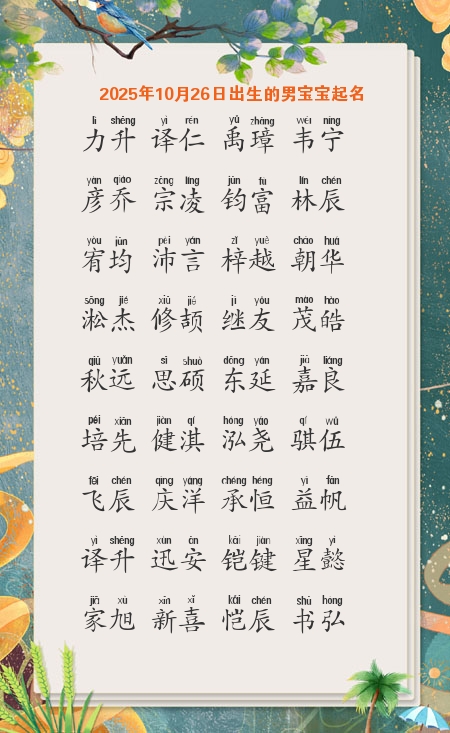 2025年10月26日出生的男宝宝起名
lì shēng yì rén yǔ zhāng wéi níng
力升 译仁 禹璋 韦宁
yàn qiáo zōng líng jūn fù lín chén
彦乔 宗凌 钧富 林辰
yòu jūn pèi yán zǐ yuè cháo huá
宥均 沛言 梓越 朝华
sōng jié xiū jié jì yǒu mào hào
淞杰 修颉 继友 茂皓
qiū yuǎn sī shuò dōng yán jiā liáng
秋远 思硕 东延 嘉良
péi xiān jiàn qí hóng yáo qí wǔ
培先 健淇 泓尧 骐伍
fēi chén qìng yáng chéng héng yì fān
飞辰 庆洋 承恒 益帆
yì shēng xùn ān kǎi jiàn xīng yì
译升 迅安 铠键 星懿
jiā xù xīn xǐ kǎi chén shū hóng
家旭 新喜 恺辰 书弘